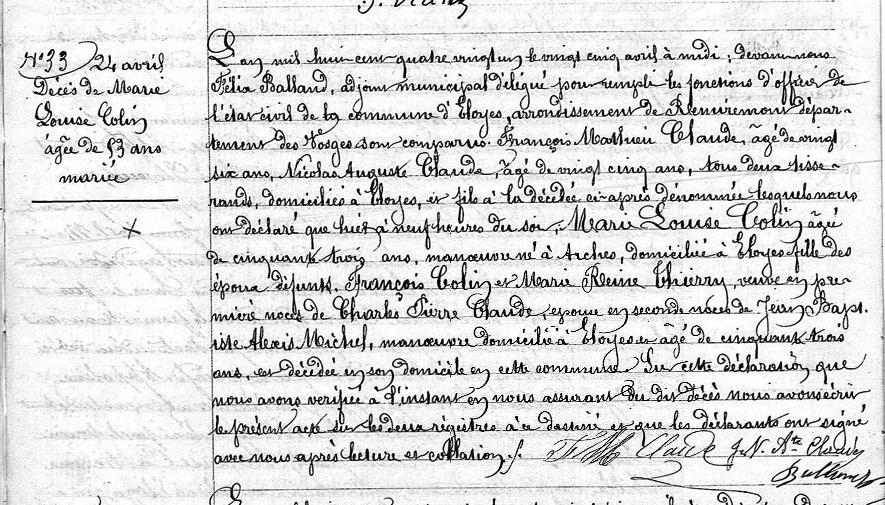 N° 33 24 avril
Décès de Marie
Louise Colin
âgée de 53 ans
mariée
L'an mil huit cent quatre vingt un le vingt cinq avril à midi, devant nous
Félix Balland, adjoint municipal délégué pour remplir les fonctions d'officier de
l'état civil de la commune d'Eloyes, arrondissement de Remiremont dépar-
tement des Vosges sont comparus François Mathieu Claude, âgé de vingt
six ans, Nicolas Auguste Claude, âgé de vingt cinq ans, tous deux tisse-
rands, domiciliés à Eloyes, et fils à la décédée ci-après dénommée lesquels nous
ont déclaré que hier, à neuf heures du soir, Marie Louise Colin âgée
de cinquante trois ans, manœuvre né à Arches, domiciliée à Eloyes fille des
époux défunts François Colin et Marie Reine Thierry, veuve en pre-
mière noces de Charles Pierre Claude, épouse en seconde noces de Jean Bapt.
iste Alexis Michel, manœuvre domicilié à Eloyes et âgé de cinquante trois
ans, est décédée en son domicile en cette commune. Sur cette déclaration que
nous avons vérifiée à l'instant en nous assurant du dit décès nous avons écrit
le présent acte sur les deux registres à ce destinés et que les déclarants ont signé
avec nous après lecture et collation ./.
F M Claude J. N. Ate Claude
Balland